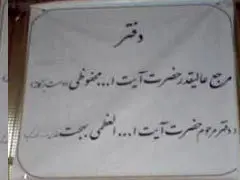 دفتر
مرجع عالیقدر حضرت آیت ا... محفوظی
و دفتر مرحوم حضرت آیت ا... العظمی بهجت